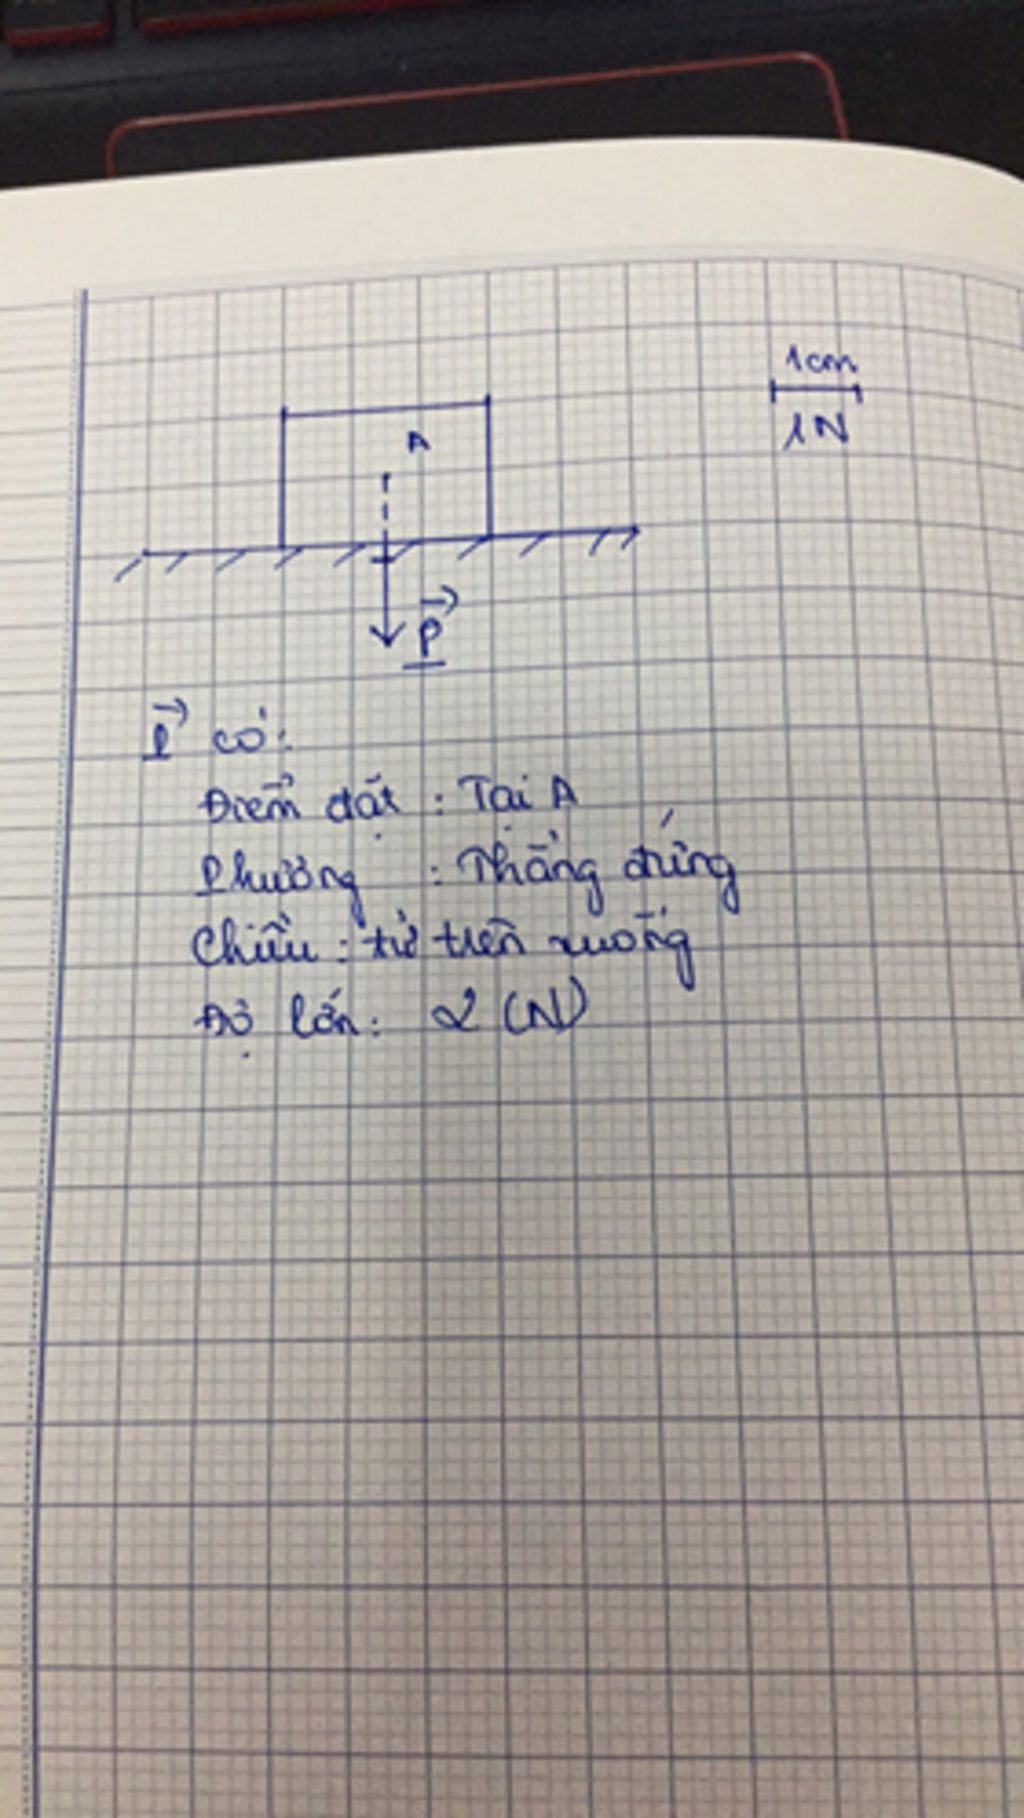 1cm
1N
A
P
P có:
Điểm đặt : Tại A
Phương : Thẳng đứng
Chiều : từ trên xuống
Độ lớn : 2 (N)